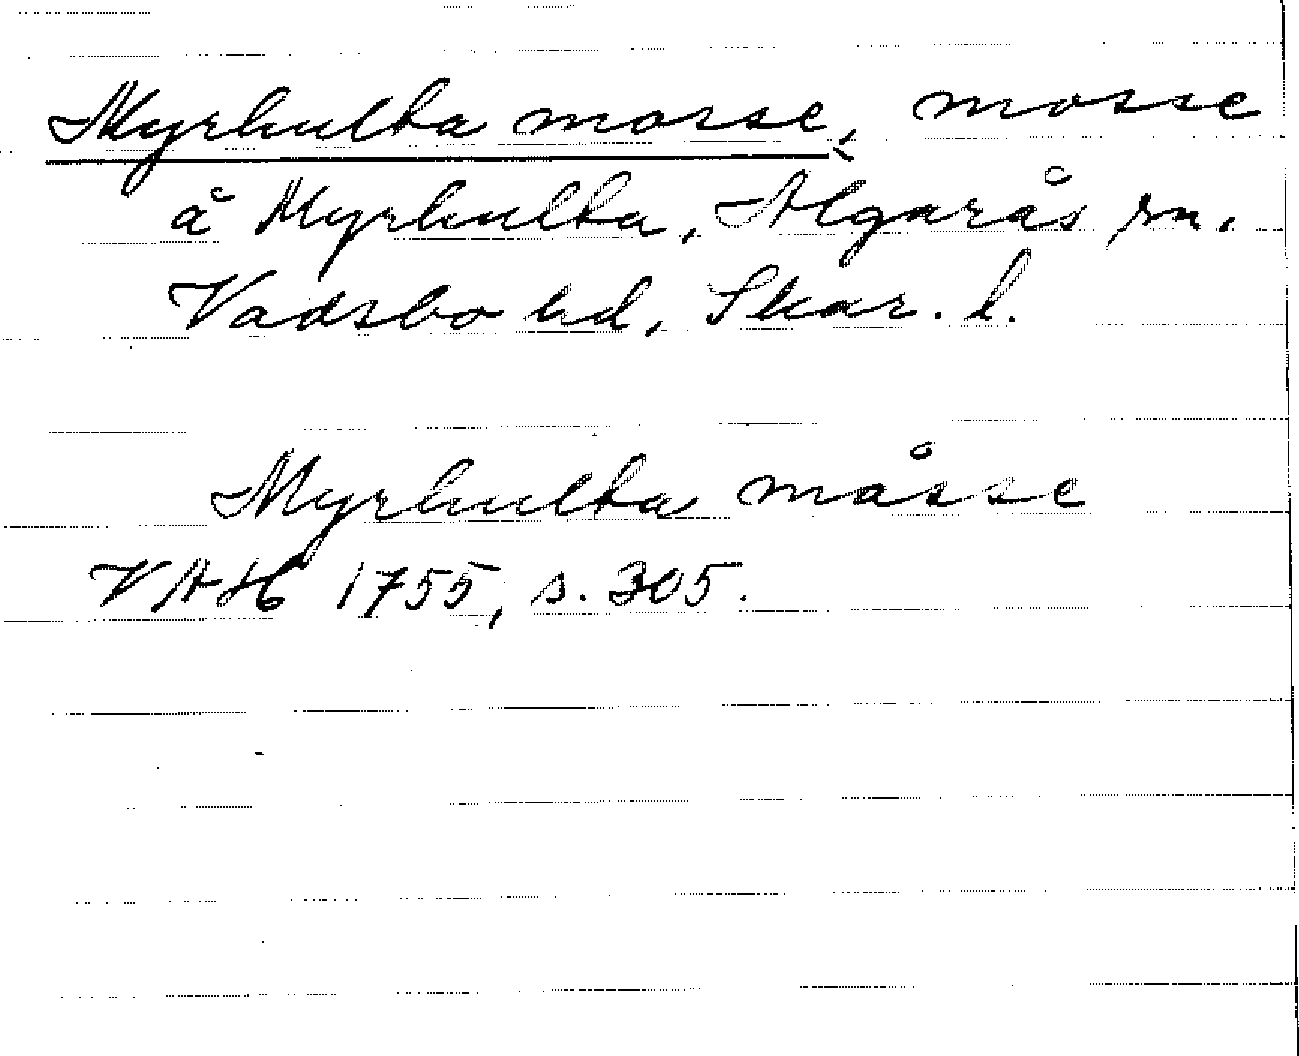 Myrhulta mosse, mosse
å Myrhulta, Algarås sn.
Vadsbo hd, Skar. l.
Myrhulta måsse
VAH 1755, s. 305.